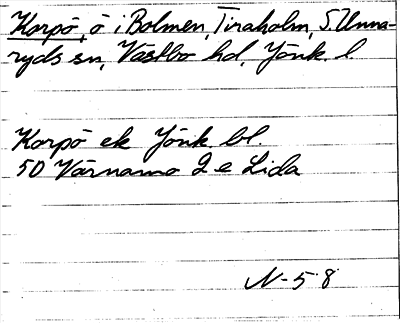 Korpö, ö i Bolmen, Tiraholm, S. Unna-
ryds sn, Västbo hd, Jönk. l.
Korpö ek Jönk. bl.
50 Värnamo 2 e Lida
N-58